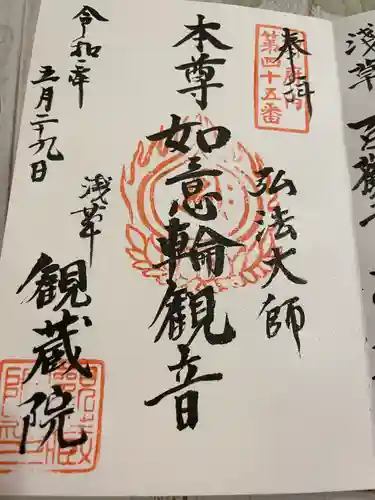 奉拝
第四十五番
弘法大師
本尊如意輪観音
令和二年
三月二十九日
浅草
観蔵院
浅草